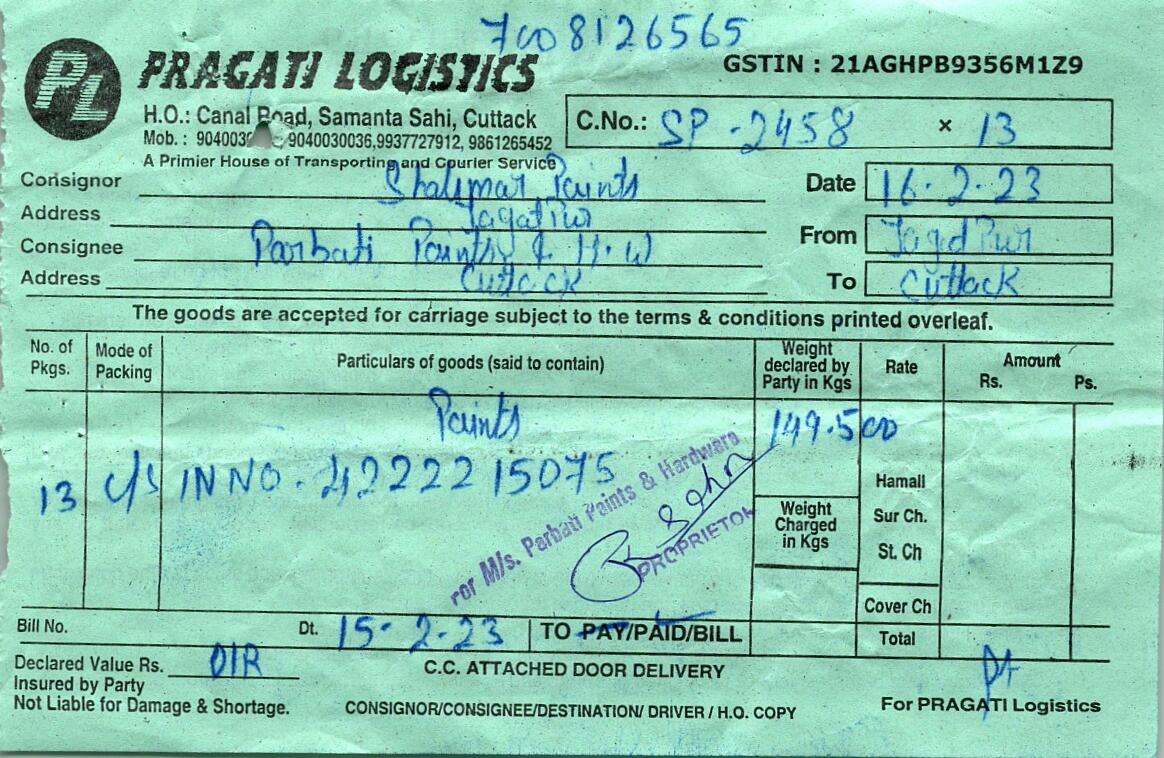 7008126565
PL PRAGATI LOGISTICS
GSTIN : 21AGHPB9356M1Z9
H.O.: Canal Road, Samanta Sahi, Cuttack
Mob. : 9040030036,9937727912, 9861265452
A Primier House of Transporting and Courier Service
C.No.: SP-2458 x 13
Consignor Shalimar Paints
Date 16.2.23
Address Jagatpur
From Jagatpur
Consignee Parbati Paints & H.W
Address Cuttack
To Cuttack
The goods are accepted for carriage subject to the terms & conditions printed overleaf.
No. of Pkgs. Mode of Packing Particulars of goods (said to contain) Weight declared by Party in Kgs Rate Amount Rs. Ps.
Paints 149.500
13 c/s INNO. 4222215075
Hamali
Weight Charged in Kgs
Sur Ch.
St. Ch
for M/s. Parbati Paints & Hardware
PROPRIETOR
Cover Ch
Bill No. Dt. 15-2-23 TO PAY/PAID/BILL Total
Declared Value Rs. OIR C.C. ATTACHED DOOR DELIVERY
Insured by Party
Not Liable for Damage & Shortage. CONSIGNOR/CONSIGNEE/DESTINATION/ DRIVER / H.O. COPY For PRAGATI Logistics